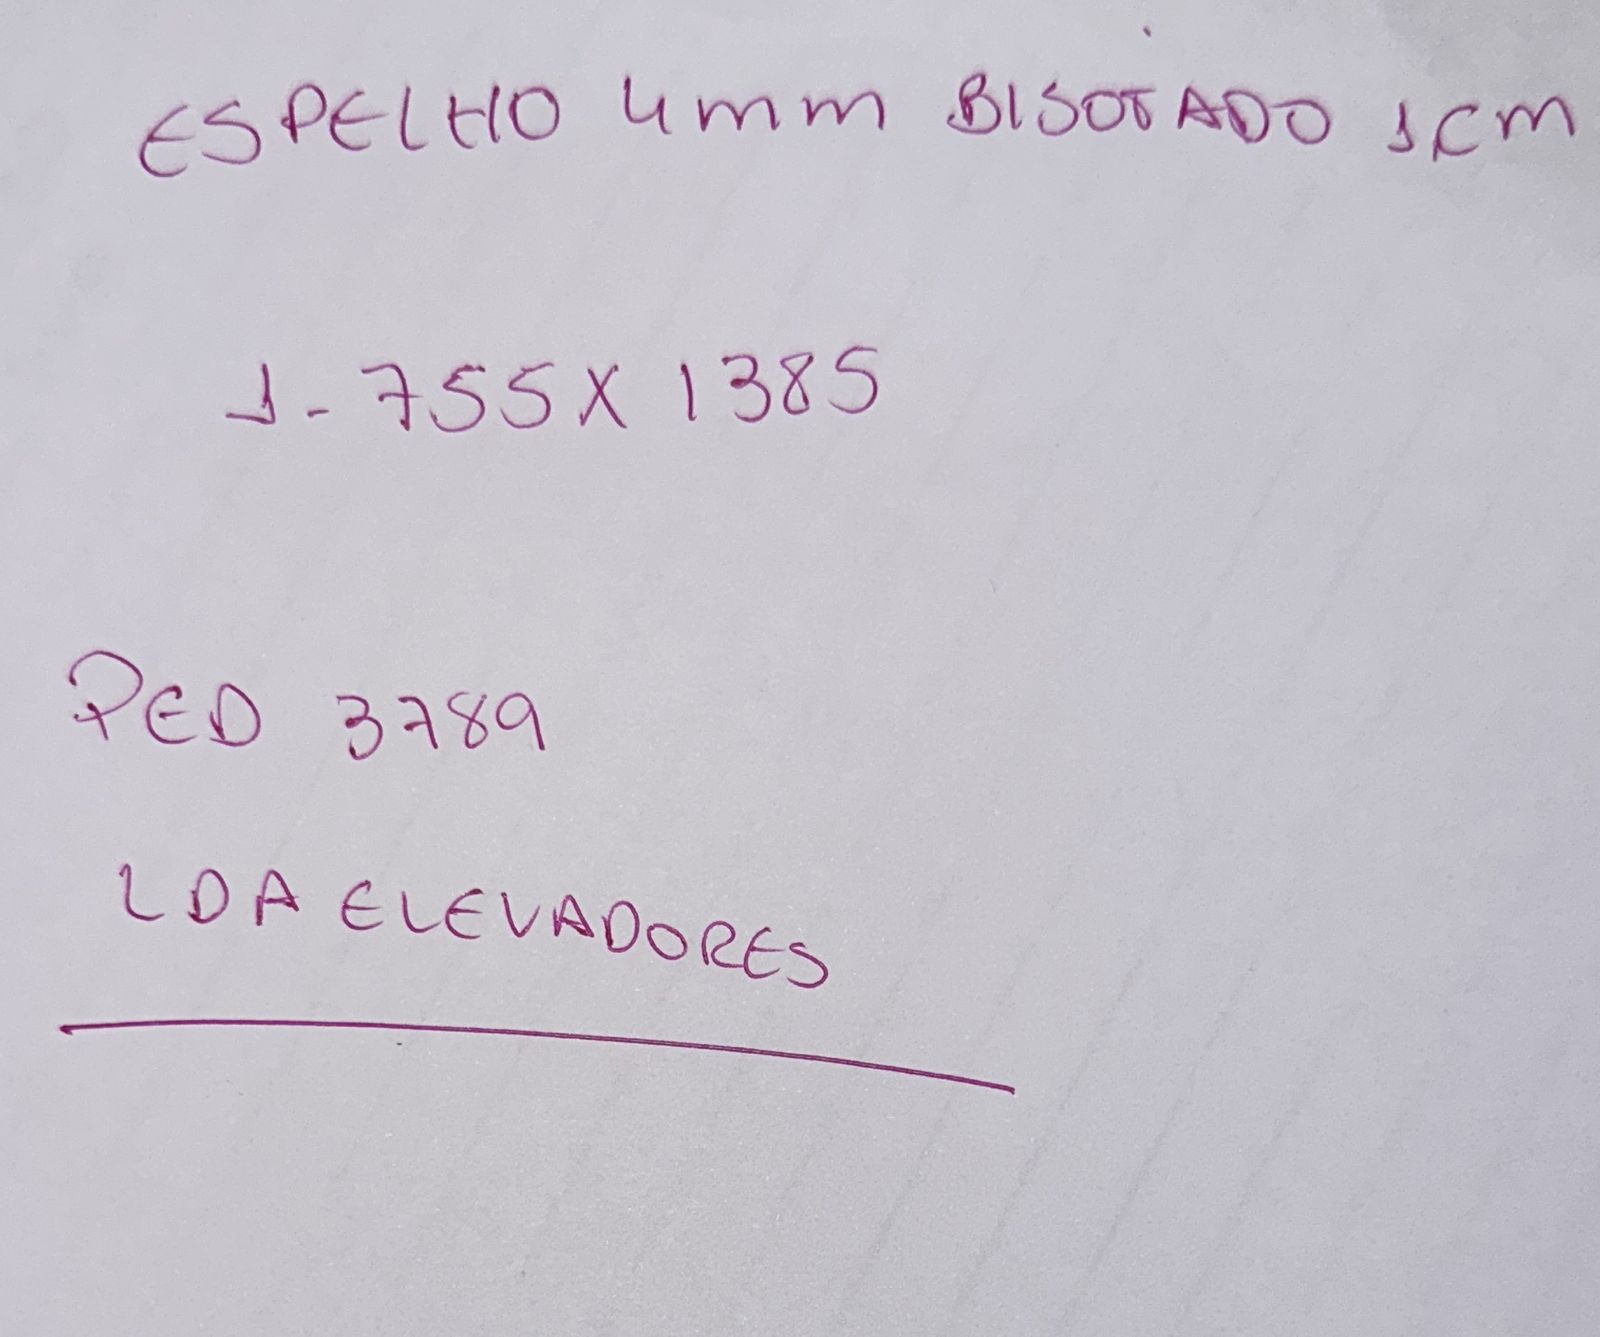 ESPELHO 4mm BISOTADO 1cm
1 - 755 X 1385
PED 3789
LDA ELEVADORES